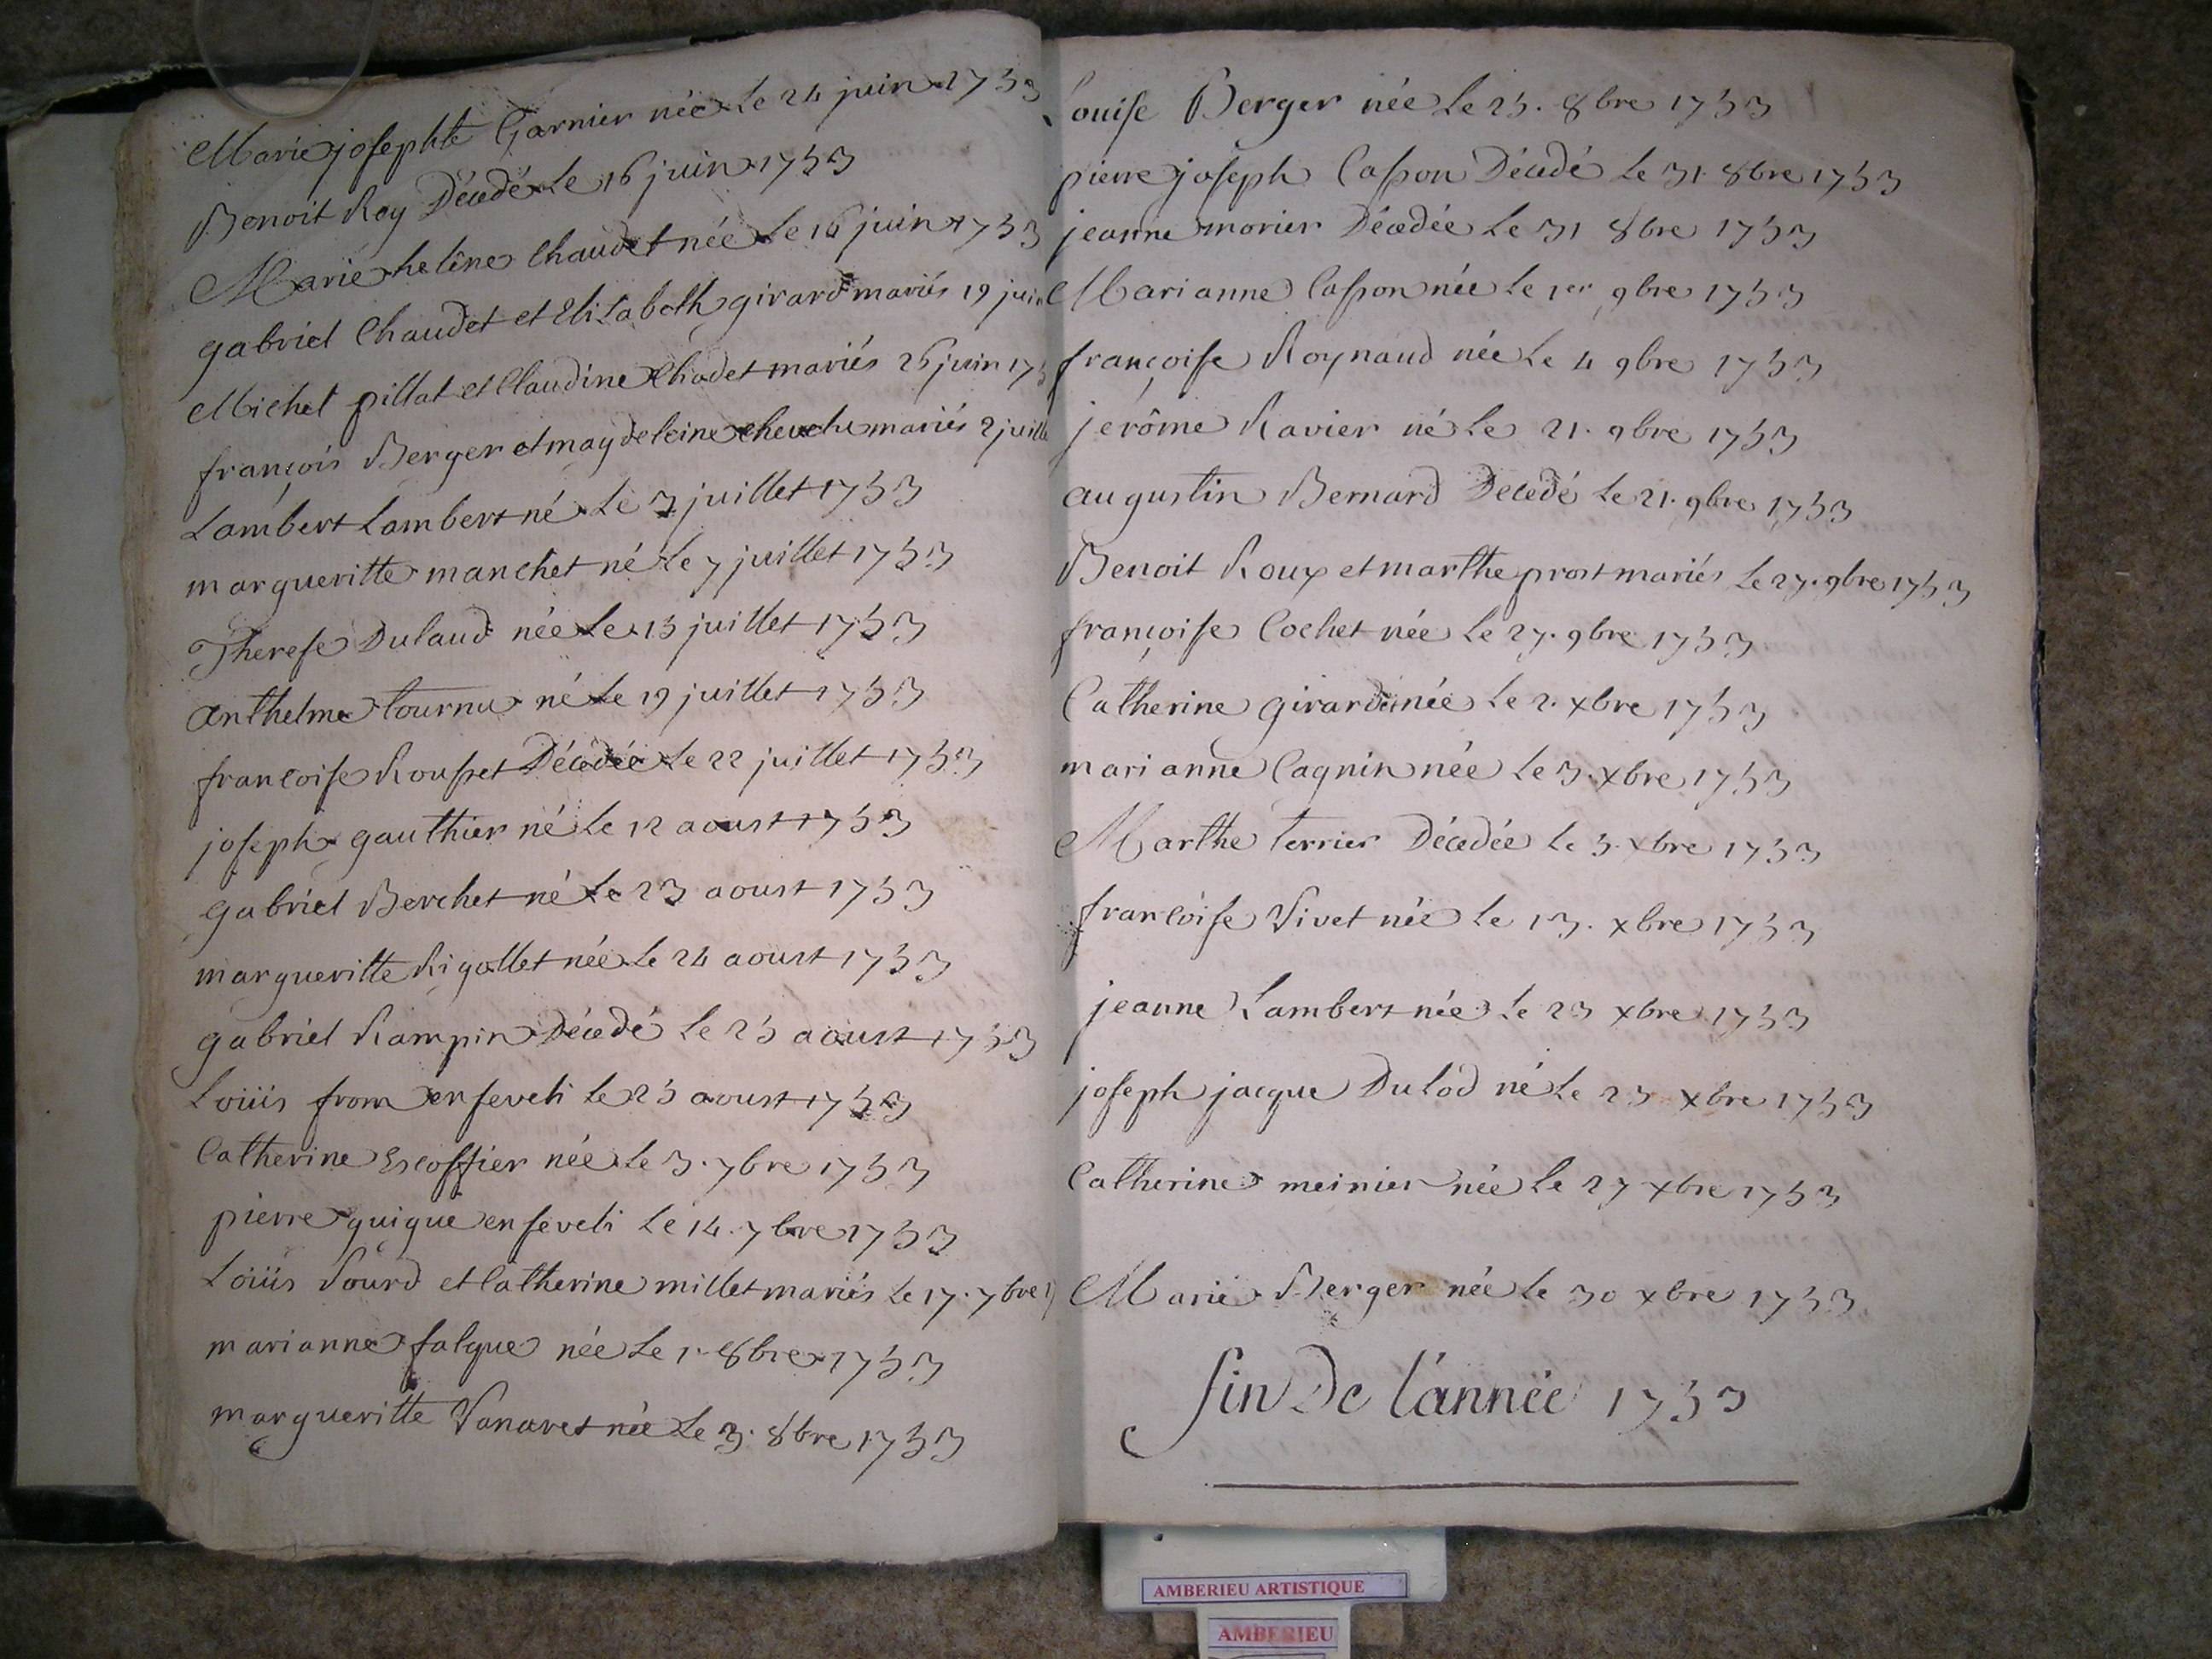 Marie josephte Garnier née Le 24 juin 1753
Benoit Roy Décédé Le 16 juin 1753
Marie helène Chaudet née Le 16 juin 1753
gabriel Chaudet et Elizabeth girard mariés 19 juin
Michel pillat et Claudine Chodet mariés 26 juin 175
françois Berger et magdeleine mariés 2 juille
Lambert Lambert né Le 3 juillet 1753
margueritte manchet né Le 7 juillet 1753
Therese Dulaud née Le 15 juillet 1753
anthelme tournu né Le 19 juillet 1753
francoise Rousset Décédée Le 22 juillet 1753
joseph gauthier né Le 12 aoust 1753
gabriel Berchet né Le 23 aoust 1753
margueritte Rigollet née Le 24 aoust 1753
gabriel Rampin Décedé Le 25 aoust 1753
Loüis from enseveli Le 25 aoust 1753
Catherine Escoffier née Le 3. 7bre 1753
pierre guigue enseveli Le 14. 7bre 1753
Loüis Sourd et Catherine millet mariés Le 17. 7bre 1
marianne falque née Le 1. 8bre 1753
margueritte Vanaret née Le 3. 8bre 1753
Louise Berger née Le 25. 8bre 1753
pierre joseph Casson Décédé Le 31. 8bre 1753
jeanne morier Décédée Le 31 8bre 1753
Marianne Casson née Le 1er 9bre 1753
françoise Roynaud née Le 4 9bre 1753
jerôme Ravier né Le 21. 9bre 1753
augustin Bernard Decedé Le 21. 9bre 1753
Benoit Roux et marthe prost mariés Le 27. 9bre 1753
françoise Cochet née Le 27. 9bre 1753
Catherine girard née Le 2. xbre 1753
marianne Cagnin née Le 3. xbre 1753
Marthe terrier Décedée Le 5. xbre 1753
francoise Vivet née Le 13. xbre 1753
jeanne Lambert née Le 23 xbre 1753
joseph jacque Dulod né Le 23 xbre 1753
Catherine meinier née Le 27 xbre 1753
Marie Berger née Le 30 xbre 1753
fin De l'année 1753
AMBERIEU ARTISTIQUE
AMBERIEU